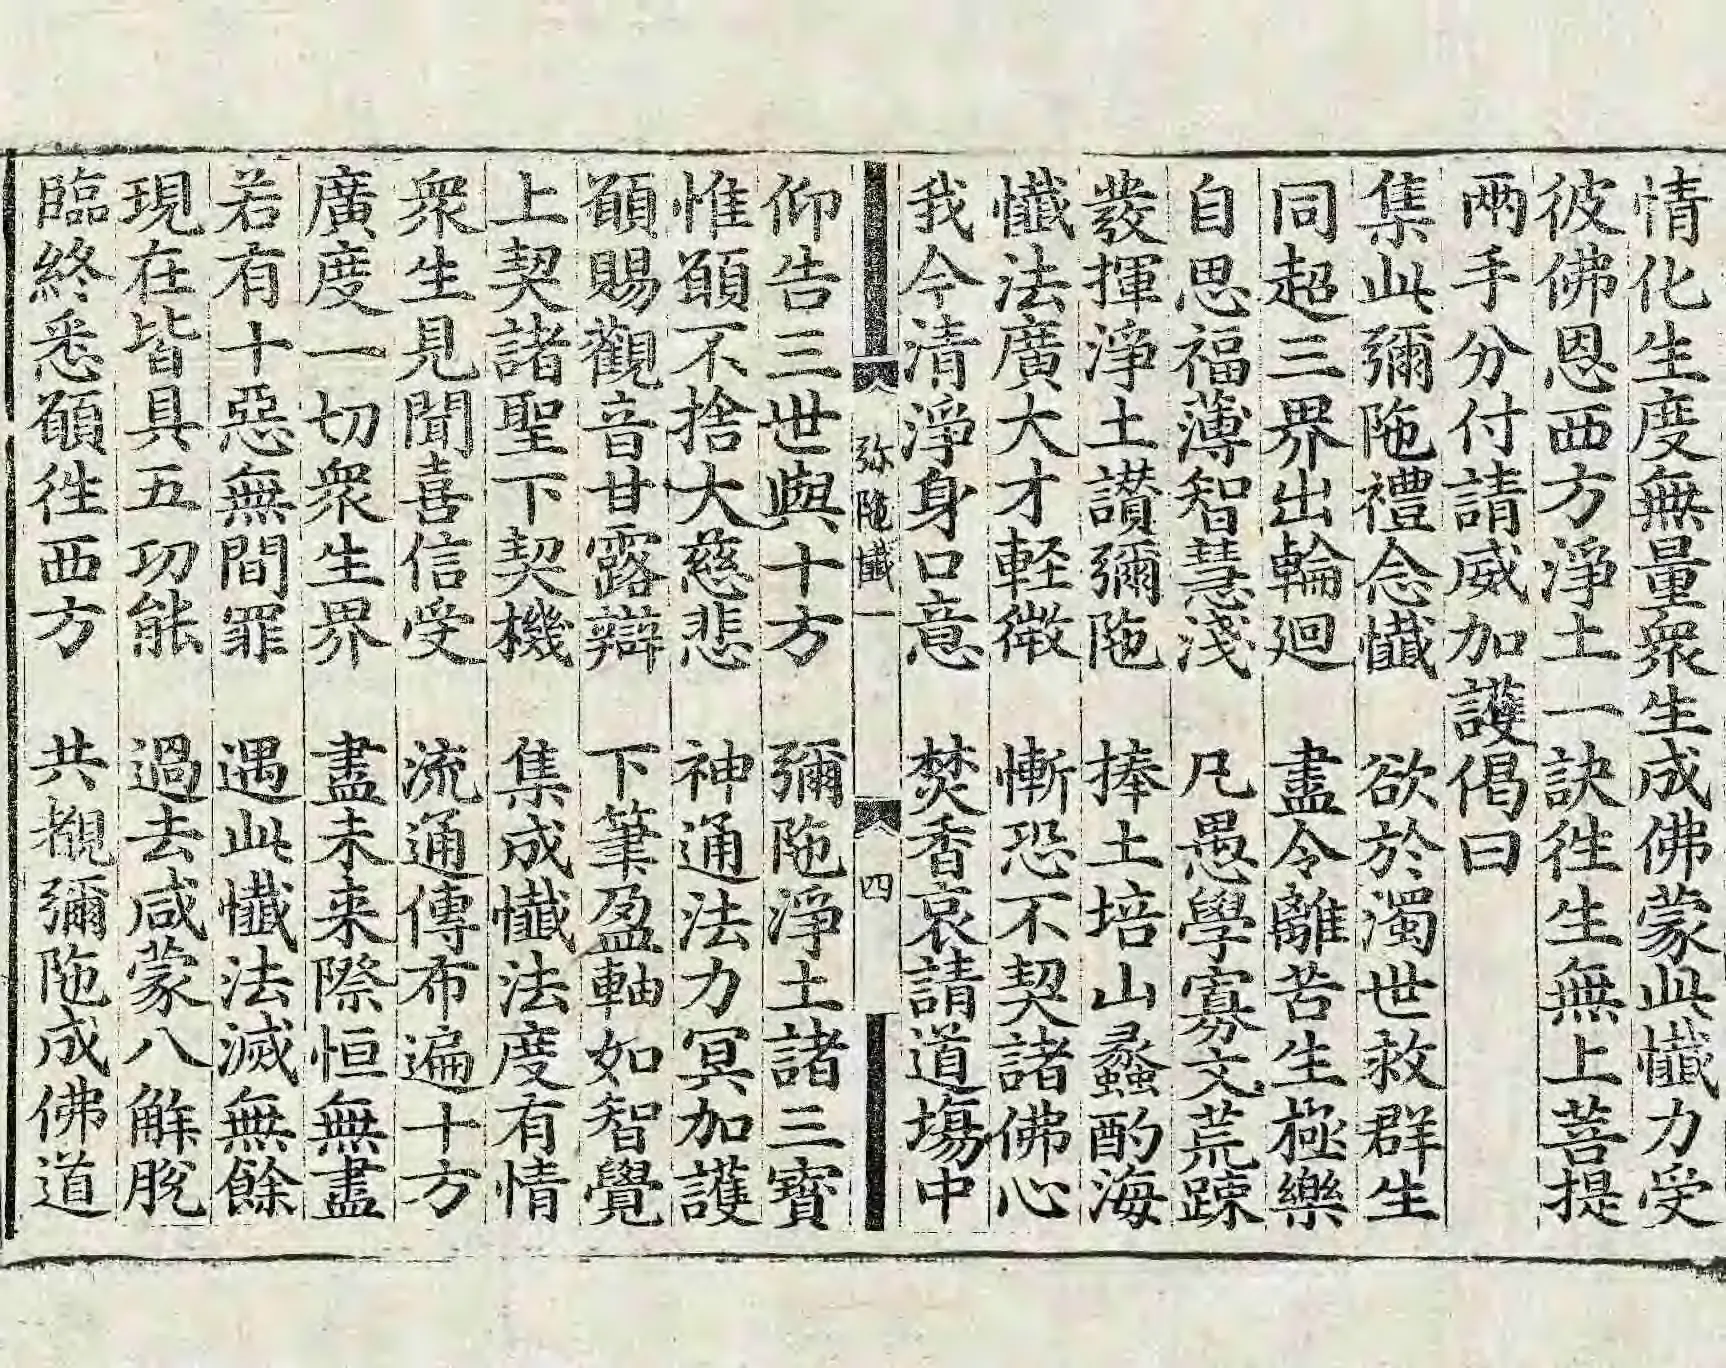 情化生度無量衆生成佛蒙此懺力受
彼佛恩西方淨土一訣徃生無上菩提
兩手分付請威加護偈曰
集此彌陁禮念懺　欲於濁世救群生
同超三界出輪廻　盡令離苦生極樂
自思福薄智慧淺　凡愚學寡文荒踈
發揮淨土讃彌陁　捧土培山蠡酌海
懺法廣大才軽微　慚恐不契諸佛心
我今清淨身口意　焚香哀請道場中
弥陁懺一　四
仰告三世與十方　彌陁淨土諸三寳
惟願不捨大慈悲　神通法力冥加護
願賜觀音甘露辯　下筆盈軸如智覺
上契諸聖下契機　集成懺法度有情
衆生見聞喜信受　流通傳布遍十方
廣度一切衆生界　盡未来際恒無盡
若有十惡無間罪　遇此懺法滅無餘
現在皆具五功能　過去咸蒙八解脫
臨終悉願徃西方　共覩彌陁成佛道